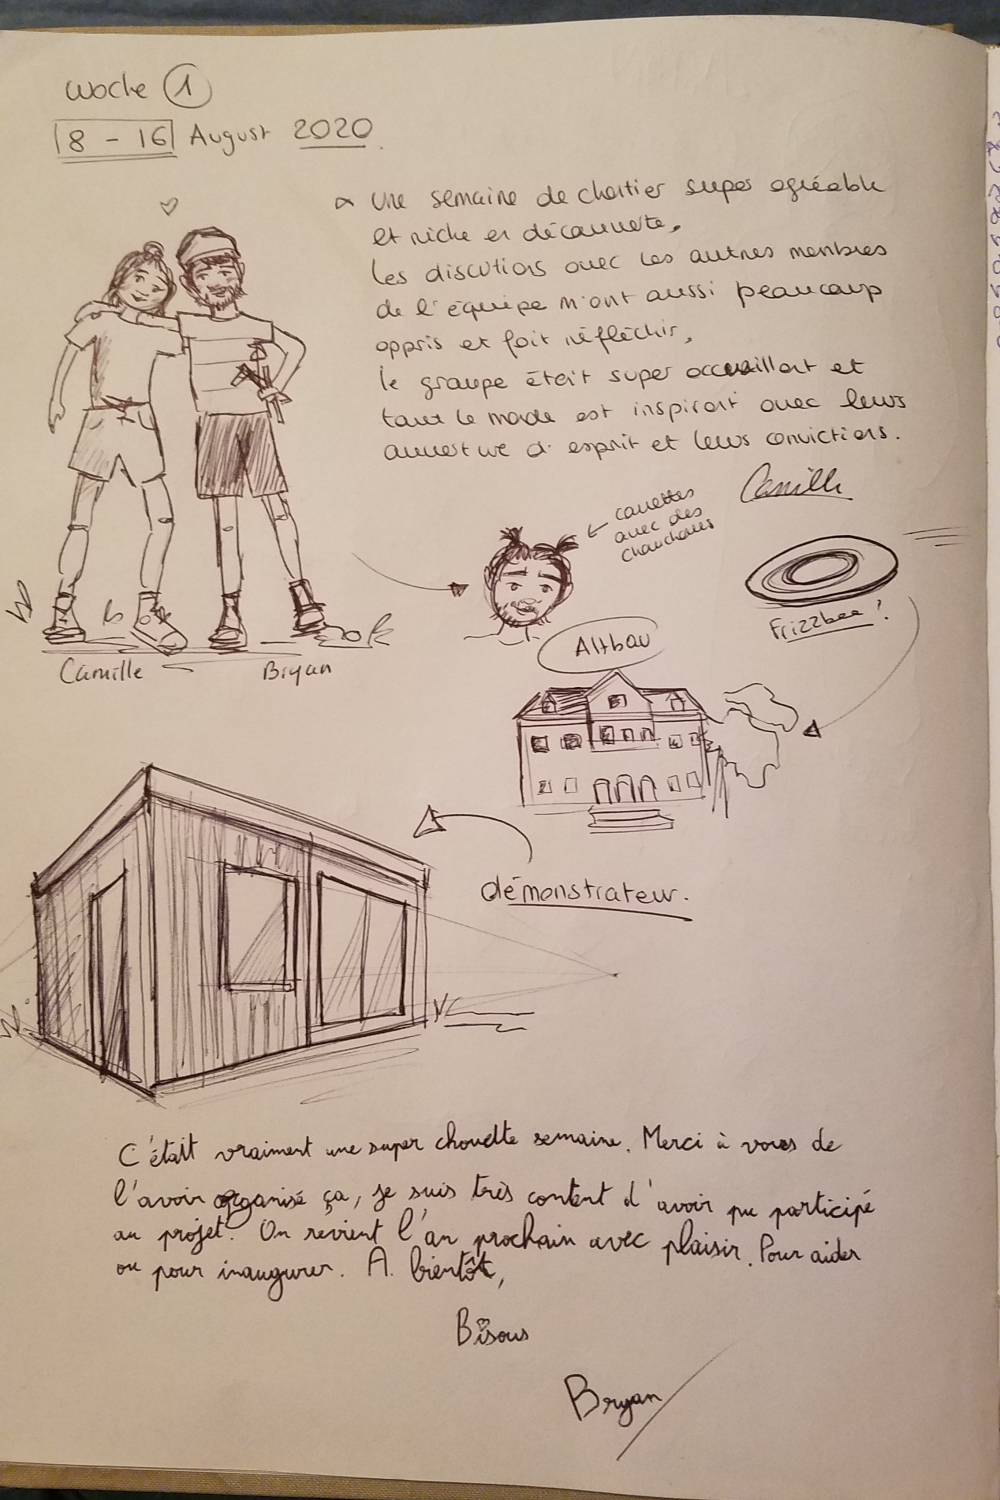 Woche 1
8 - 16 August 2020
Une semaine de chantier super agréable
et riche en découverte,
les discutions avec les autres membres
de l'équipe m'ont aussi beaucoup
appris et fait réfléchir,
le groupe était super accueillant et
tout le monde est inspirant avec leurs
ouverture d'esprit et leurs convictions.
Camille
← couettes
avec des
chouchous
Frizzbee !
Altbau
Camille
Bryan
démonstrateur.
C'était vraiment une super chouette semaine. Merci à vous de
l'avoir organisé ça, je suis très content d'avoir pu participé
au projet. On revient l'an prochain avec plaisir. Pour aider
ou pour inaugurer. A bientôt,
Bisous
Bryan